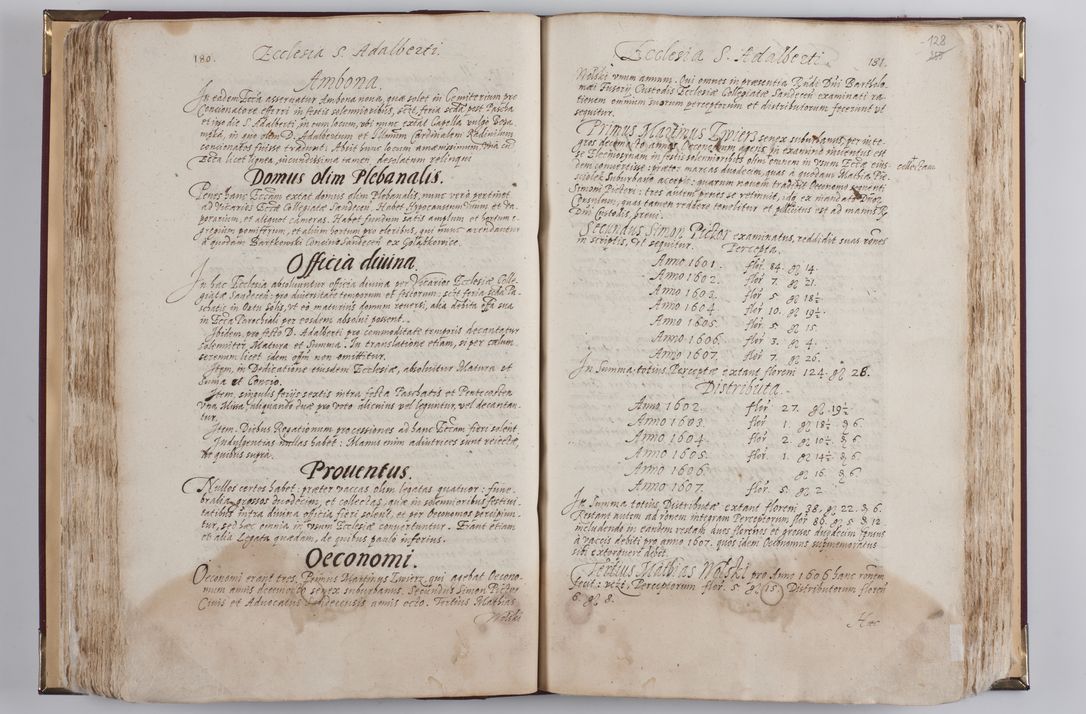 180. Ecclesia S. Adalberti.
Ambona.
In eadem Eccĺia asseruatur Ambona noua, quæ solet in Cemiterium pro
Concionatore efferri in festis solennioribus, scit̃ feria scđa post Pascha
et ipso die S. Adalberti, in eum locum, ubi nunc extat Capella vulgo
in quo olim D. Adalbertum et Illmum Cardinalem Radiuilum
concionatos fuisse tradunt. Abiit nunc locum amœnissimum, una cum
Eccĺia licet lignea, iucundissima tamen, desolatum relinqui
Domus olim Plebanalis.
Penes hanc Eccĺiam extat domus olim Plebanalis, nunc verò pertinet
ad Vicarios Eccĺiæ Collegiatæ Sandecen̄. Habet Hypocaustum unum et Va-
porarium, et aliquot cameras. Habet fundum satis amplum et hortum e-
gregium pomiferum, et alium hortum pro oleribus, qui nunc arendantur
à quodam Bartkowski Conciuo Sandecen̄ ex Gołątkowice.
Officia diuina.
In hac Ecclesia absoluuntur officia diuina per Vicarios Ecclesiæ Colle-
giatæ Sandecen̄: pro diuersitate temporum et festorum, scit̃ feria scđa Pa-
schatis in Ortu Solis, ut eò maturius domum reuersi, alia debita
in Eccĺia Parochiali per eosdem absolui possent.
Ibidem, pro festo D. Adalberti pro commoditate temporis decantatur
solenniter, Matura et Summa. In translatione etiam, si per cœlum
serenum licet idem offm̃ non omittitur.
Item, in Dedicatione eiusdem Ecclesiæ, absoluitur Matura et
Suma et Concio.
Item, singulis ferijs sextis intra festa Paschatis et Pentecosten
Vna Missa, aliquando duæ pro voto alicuius vel leguntur, vel decantan-
tur.
Item, Diebus Rogationum processiones ad hanc Eccĺiam fieri solent.
Indulgentias nullas habet: Manus enim adiutrices sunt reiectæ,
de quibus suprà.
Prouentus.
Nullos certos habet: præter vaccas olim legatas quatuor: fune-
bralia grossos duodecim, et collectas, quæ in solennioribus festiui-
tatibus intra diuina officia fieri solent, et per Oeconomos percipiun-
tur, sed hæc omnia in usum Ecclesiæ conuertuntur. Erant etiam
et alia Legata quædam, de quibus paulò inferius.
Oeconomi.
Oeconomi erant tres. Primus Martinus Zwierz qui gerebat Oecono-
mum annis decemocto senex suburbanus. Secundus Simon Pictor
Ciuis et Aduocatus Sandecensis annis octo. Tertius Mathias
Wolski
Ecclesia S. Adalberti 181.
128
Wolski unum annum. Qui omnes in præsentia Rñdi Dñi Bartholo-
mæi Fusorij Custodis Ecclesiæ Collegiatæ Sandecen̄ examinati ra-
tionem omnium suorum perceptorum et distributorum fecerunt ut
sequitur.
Primus Martinus Zwierz senex suburbanus, per inte-
gros decemocto annos Oeconomum agens, in examine inuentus est
se Eleemosynam in festis solennioribus olim
collectam
in usum Eccĺiæ eius-
dem conuertisse: præter marcas duodecim, quas à quodam Mathia Pie-
Suburbano accepit: quarum nouem tradidit Oeconomo sequenti
Simoni Pictori: tres autem penes se retinuit, idq ex mandato Dñor
Consulum, quas tamen reddere tenebitur et pollicitus est ad manus R.
Dñi Custodis breui.
Secundus Simon Pictor examinatus, reddidit suas rões
in scriptis, ut sequitur.
Percepta.
Anno 1601. flor. 84. gr 14.
Anno 1602. flor 7. gr 21.
Anno 1603. flor 5 gr 18½
Anno 1604 flor 10. gr 19½.
Anno 1605. flor. 5 gr 15.
Anno 1606. flor 3. gr 4.
Anno 1607. flor 7. gr 26.
In Summa totius Perceptæ extant floreni 124. gr 28.
Distributa.
Anno 1602. flor 27. gr 19½.
Anno 1603. flor 1. gr 18½ ₰ 6.
Anno 1604. flor 2. gr 10½. ₰ 6.
Anno 1605. flor 1. gr 14½. ₰ 6.
Anno 1606. gr 16. ₰ 6.
Anno 1607. flor. 5. gr 2.
In Summa totius Distributæ extant floreni 38. gr 22. ₰ 6.
Restant autem ad rõnem integram Perceptorum flor 86. gr 5 ₰ 12.
includendo in eandem restam duos florenos et grossos duodecim census
à vaccis debiti pro anno 1607. quos idem Oeconomus supmemoratus
sibi extorquere debet.
Tertius Mathias Wolski pro Anno 1606 hanc rõnem
fecit: vezt. Perceptorum flor. 5 gr 15. Distributorum floreni
6 gr 8.
Hæc